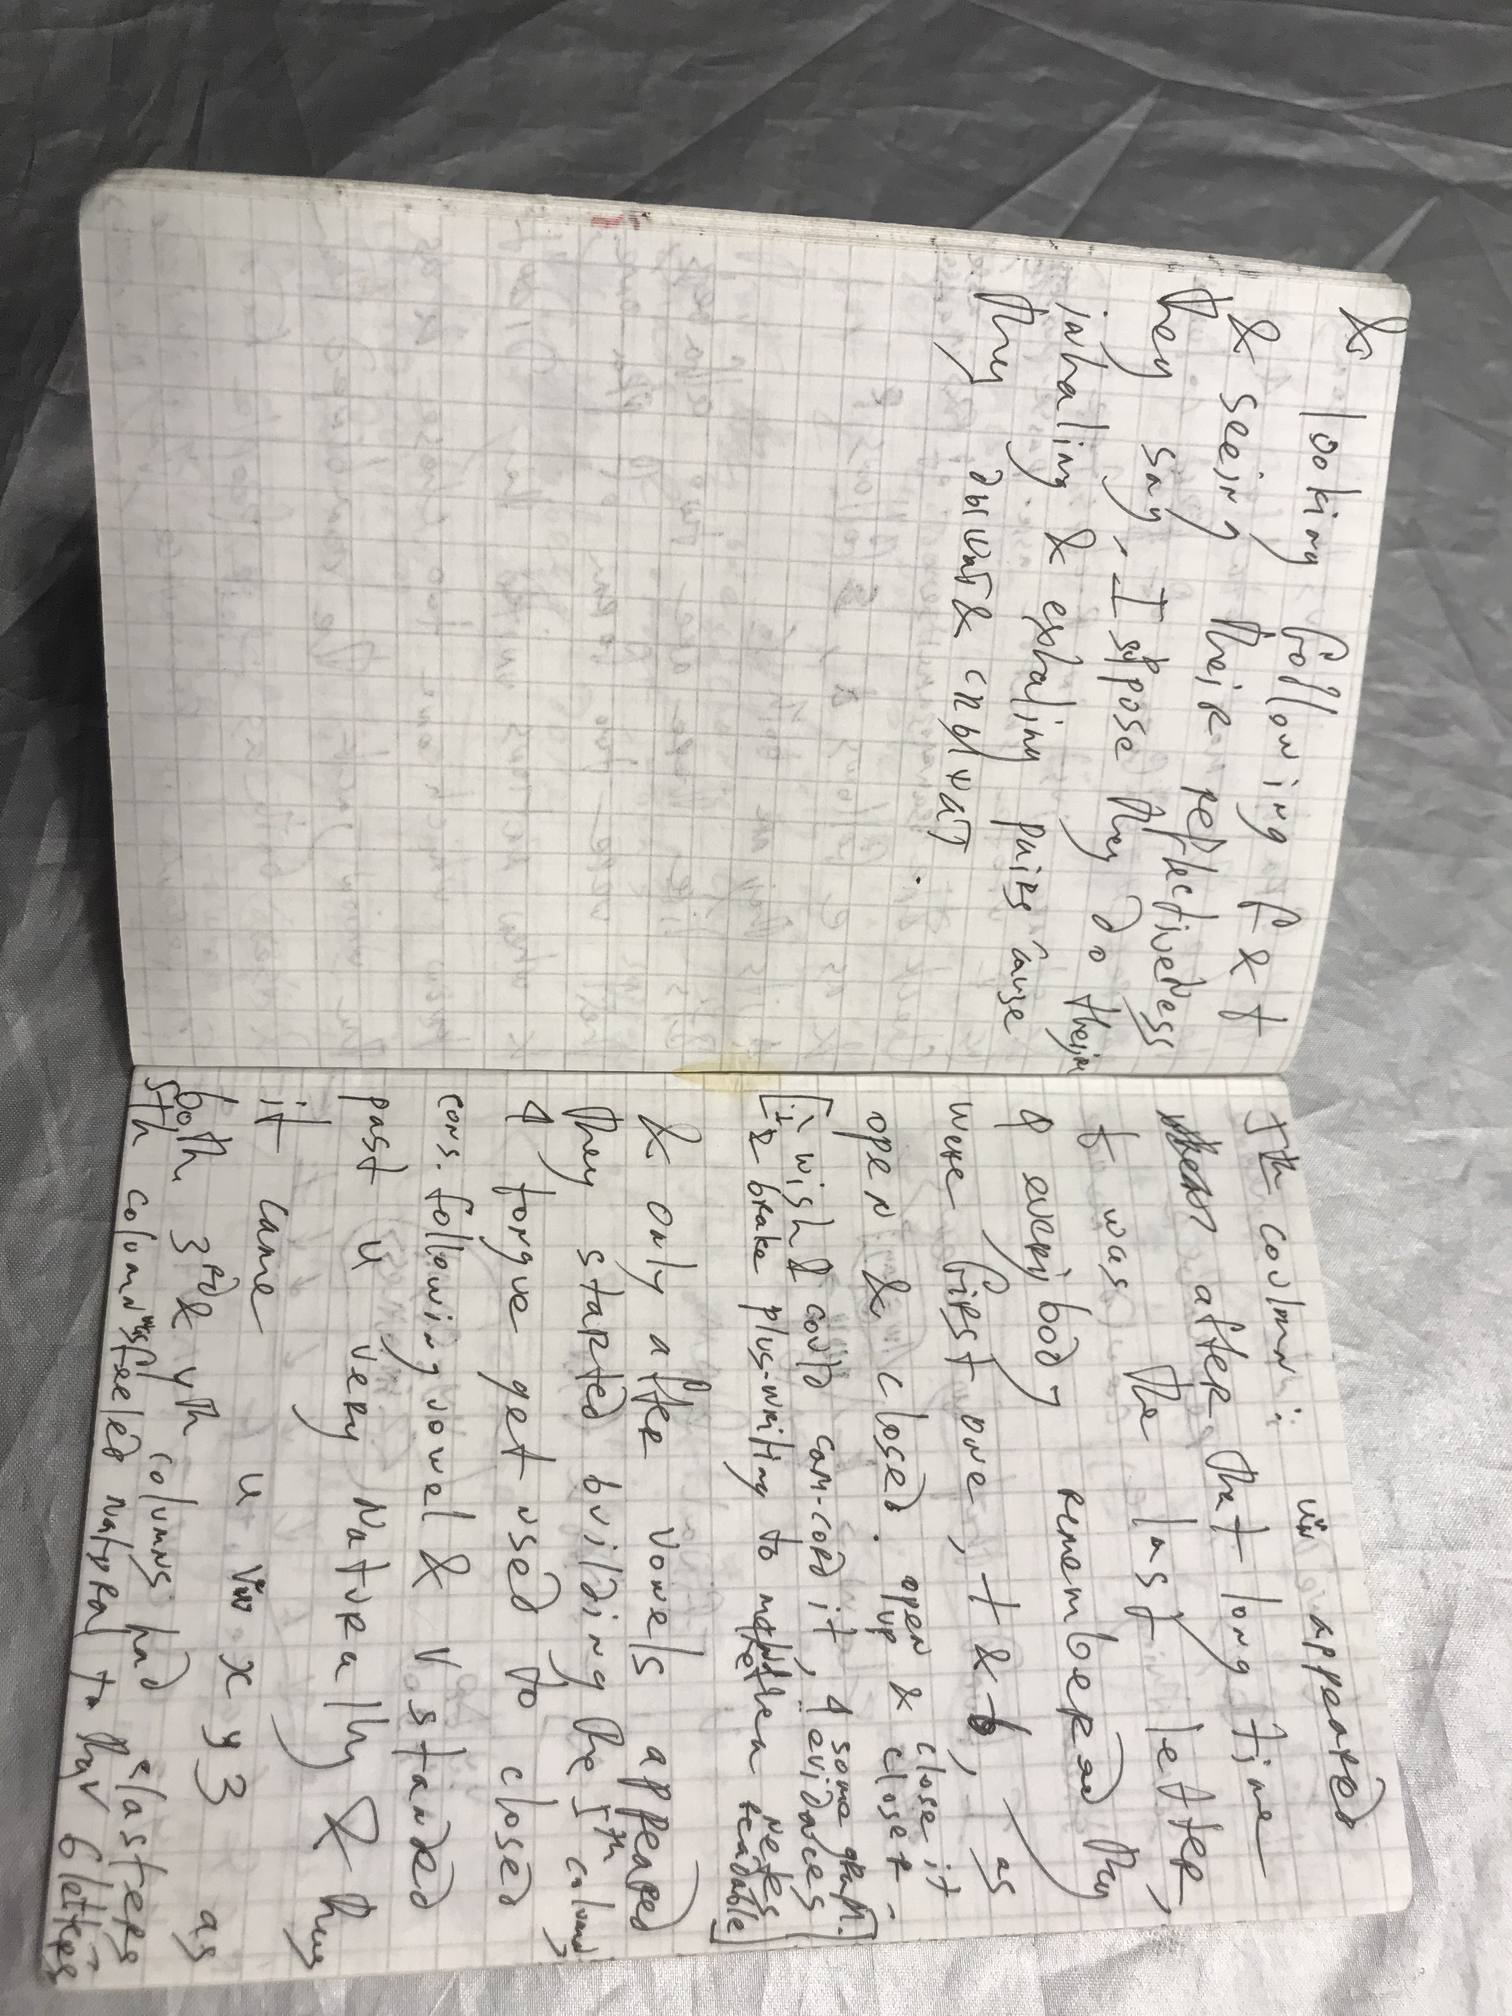 & looking following f & t
& seeing their reflectiveness
they say, I suppose they do their
inhaling & exhaling pairs cause
they дышат & слышат.
5th coulmn: appeared
after that long time
t was the last letter,
& everybody remembered they
were first one, t & b, as
open & closed. open & close it
up & closer
[i wish I could cam-cord it, 4 some graph.
4 evidences
i brake plus-writing to make then notes
readable]
& only after vowels appeared
they started building the 5th column,
4 tongue get used to closed
cons. following vowel & V standed
past u very naturally & thus
it came u x y 3 as
both 3rd & 4th columns had clasters
5th column feeled natural to hav 6 letters